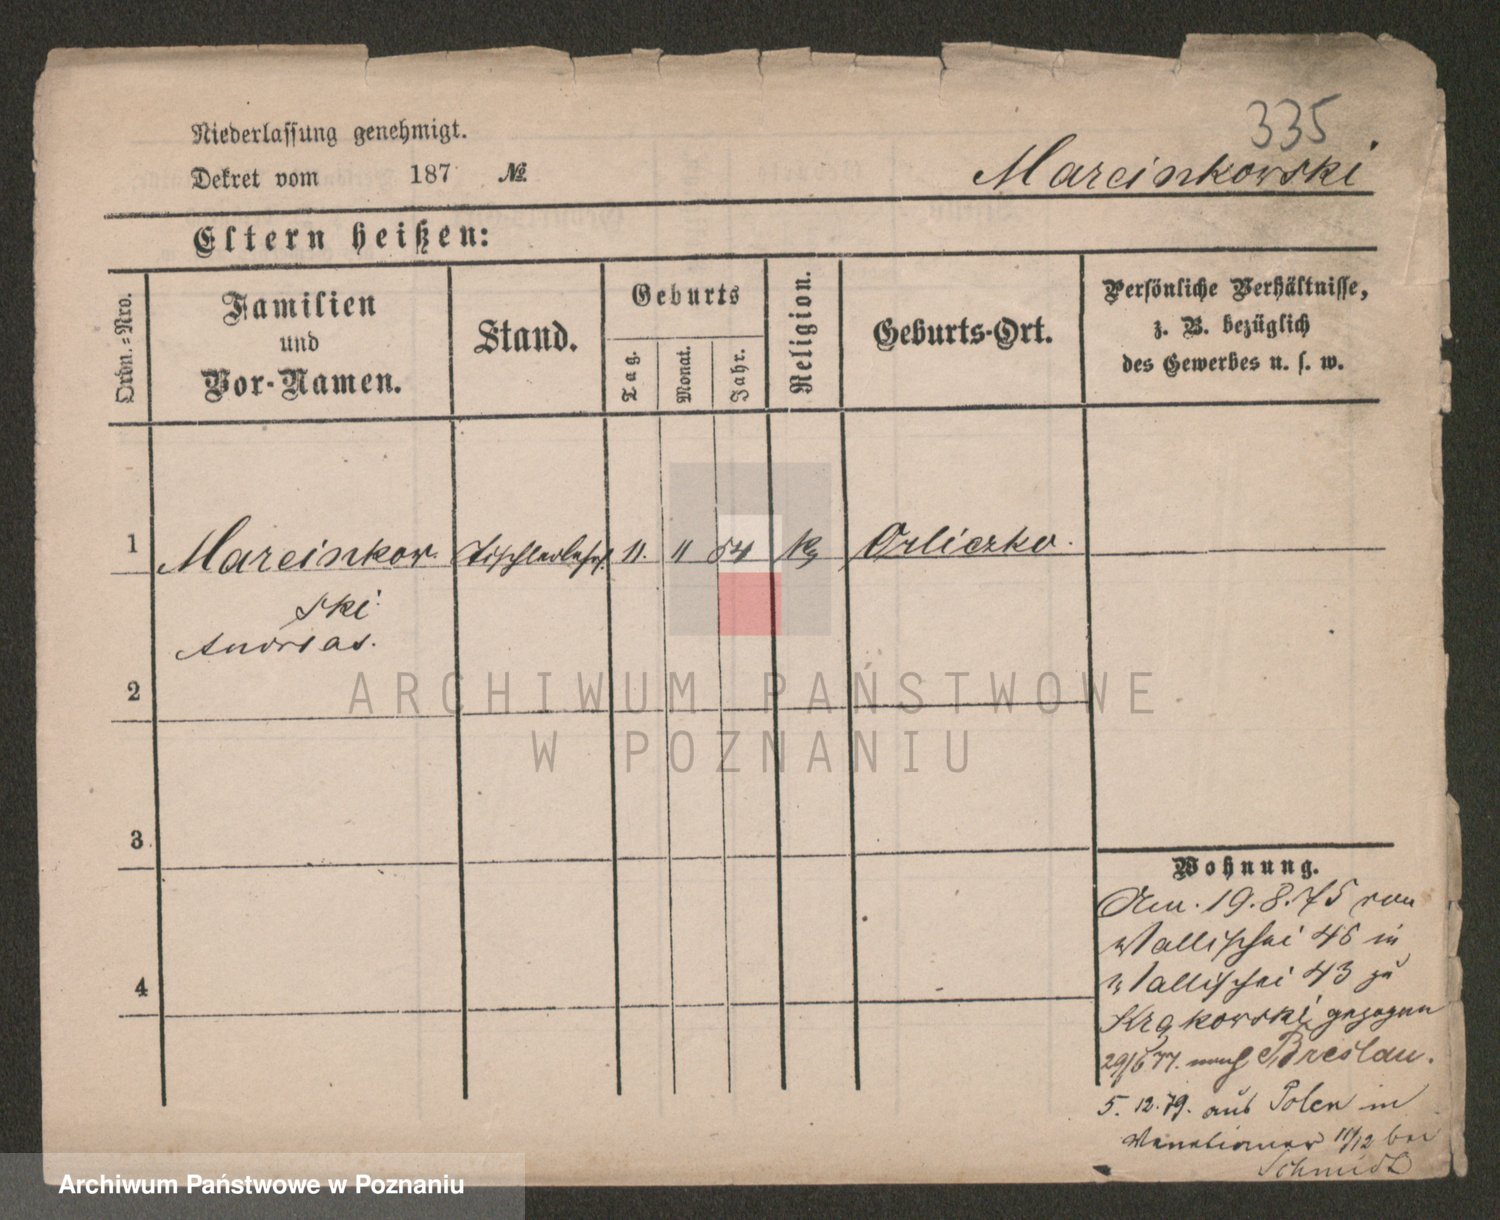 335
Niederlassung genehmigt.
Dekret vom 187 №
Marcinkowski
Eltern heißen:
Ordn.=Nro.
Familien
und
Vor-Namen.
Stand.
Geburts
Tag.
Monat.
Jahr.
Religion.
Geburts-Ort.
Persönliche Verhältnisse,
z. B. bezüglich
des Gewerbes u. s. w.
1 Marcinkow 11. 11 54 Orliczko.
ski
Andreas.
2
3
4
Wohnung.
19.8.75 von
Wallischei 46 in
Wallischei 43 zu
Krąkowski gezogen
29/6 77. nach Breslau.
5. 12. 79. aus Polen in
Venetianer 11/12 bei
Schmidt
ARCHIWUM PAŃSTWOWE
W POZNANIU
Archiwum Państwowe w Poznaniu